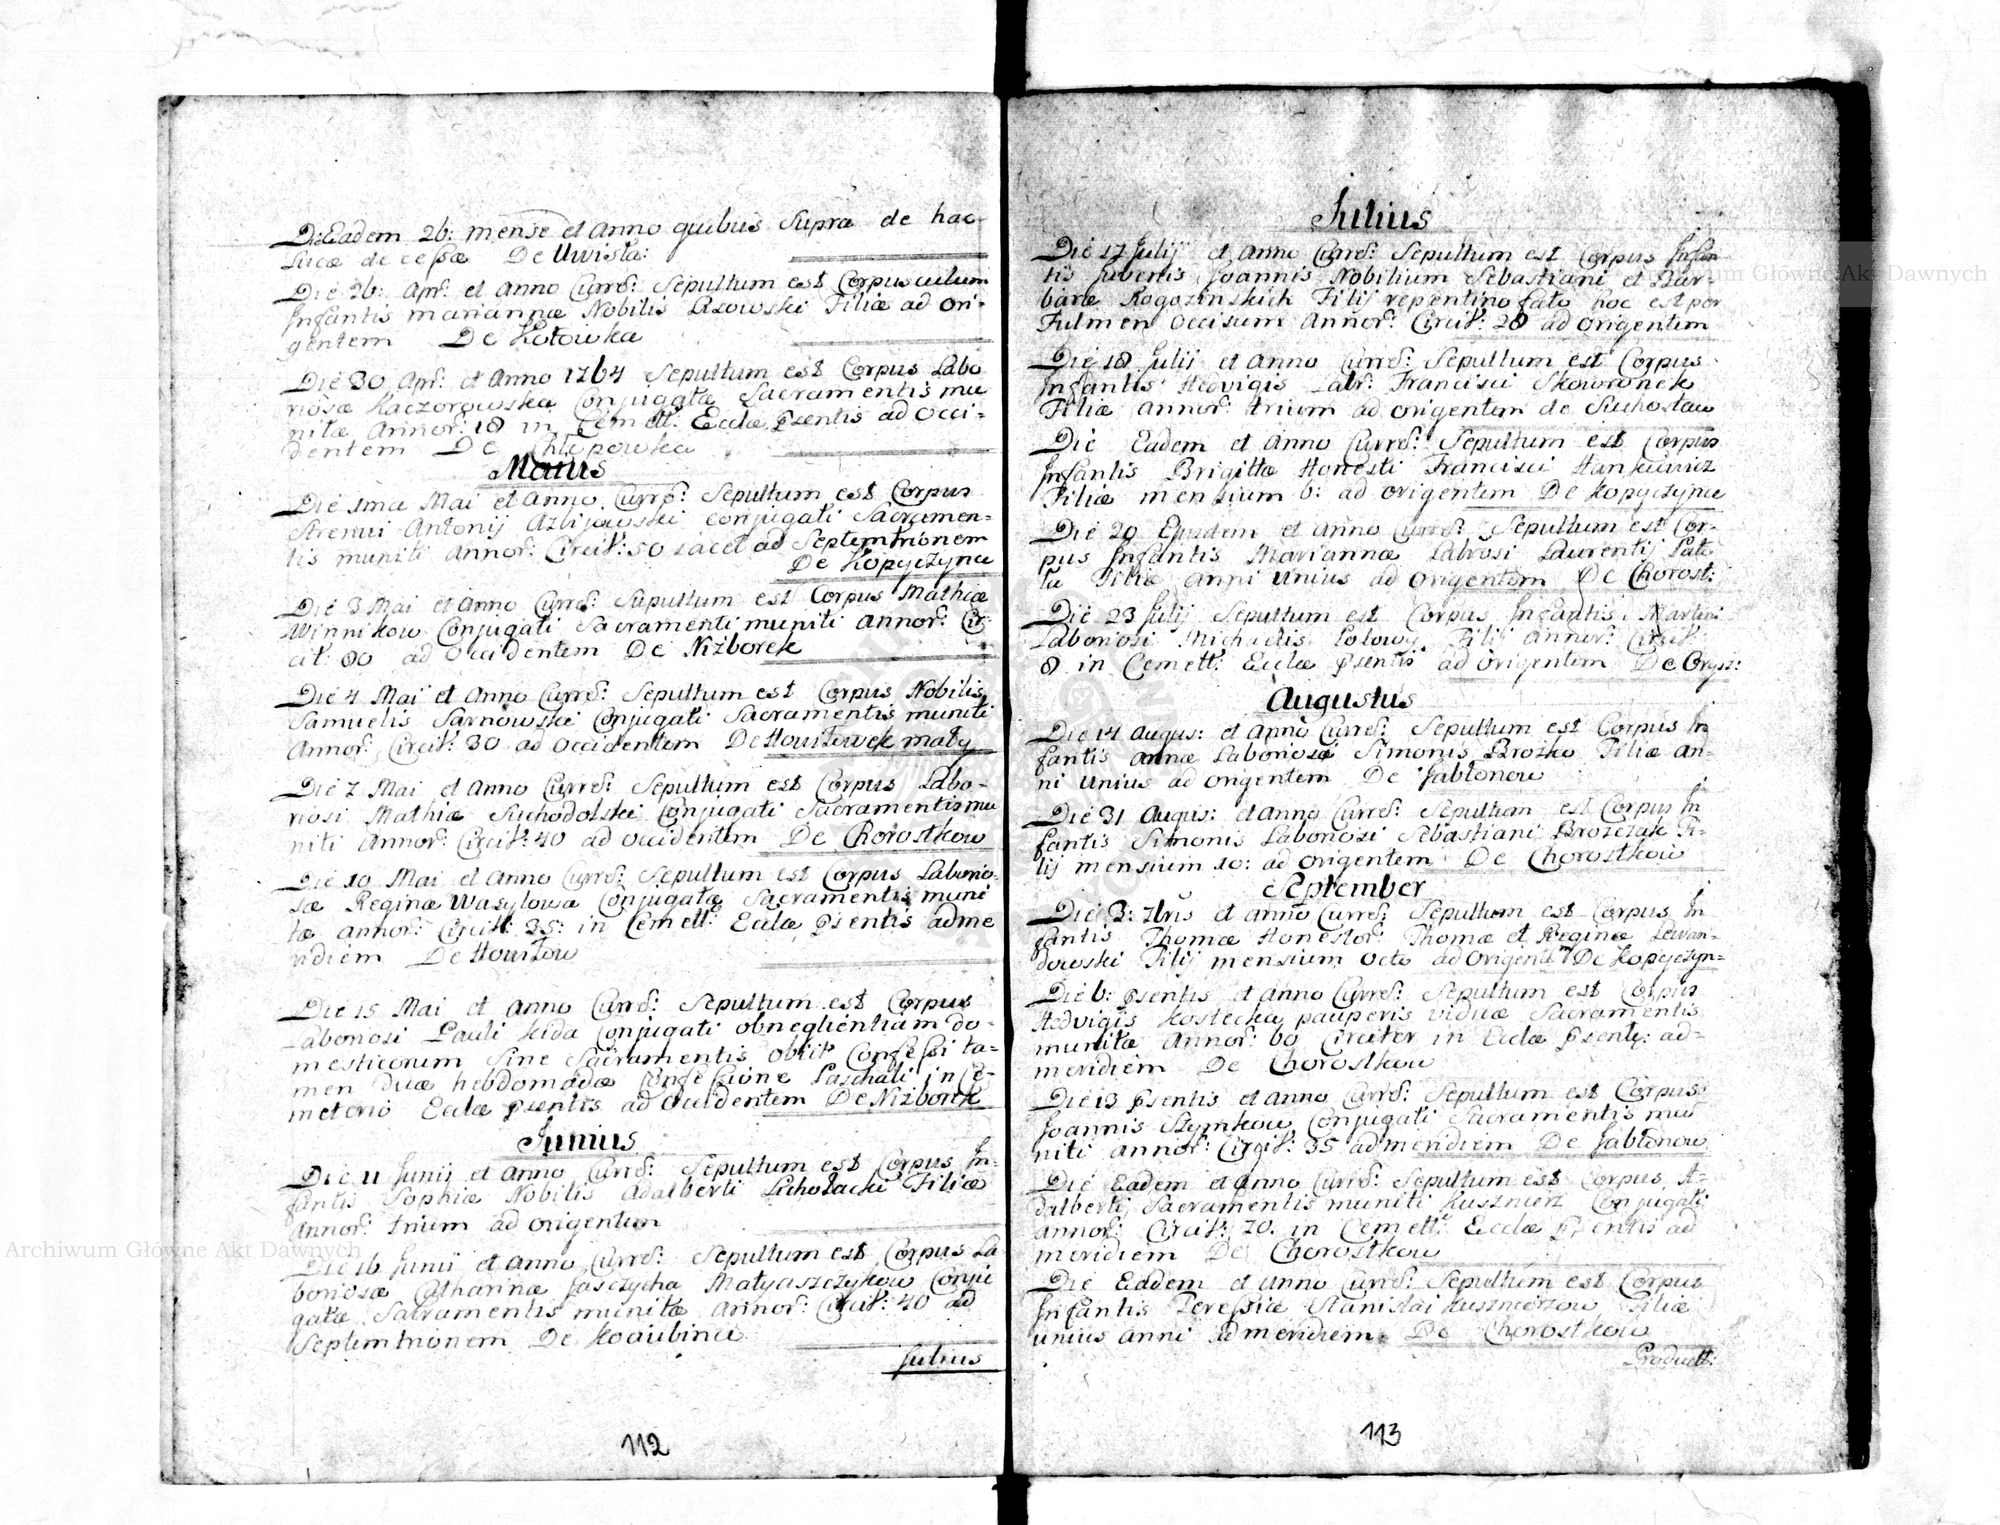 Die Eadem 26: mense et Anno quibus Supra de hac
Luce decessae De Uwisla:
Die 26: Apr: et Anno Curre: Sepultum est Corpusculum
Infantis mariannae Nobilis Lisowski Filiae ad ori-
gentem De Kotowka
Die 30 Apr: et Anno 1764 Sepultum est Corpus Labo
riosae Kaczorowska Conjugatae Sacramentis mu
nitae Annor: 18 in Cemett: Eccłae psentis ad occi-
dentem De Chłopowka
Maius
Die 1ma Mai et Anno Curre: Sepultum est Corpus
Strenui Antonij conjugati Sacramen-
tis muniti annor: Circit: 50 iacet ad Septemtrionem
De Kopyczynce
Die 3 Mai et Anno Curre: Sepultum est Corpus Mathiae
Winnikow Conjugati Sacramenti muniti Annor: Cir-
cit: 80 ad Occidentem De Niżborek
Die 4 Mai et Anno Curre: Sepultum est Corpus Nobilis
Samuelis Sarnowski Conjugati Sacramentis muniti
Annor: Circit: 30 ad Occidentem De Howilowek mały
Die 7 Mai et Anno Curre: Sepultum est Corpus Labo-
riosi Mathiae Suchodolski Conjugati Sacramentis mu
niti Annor: Circit: 40 ad occidentem De Chorostkow
Die 10 Mai et Anno Curre: Sepultum est Corpus Laborio-
sae Reginae Wasylowa Conjugatae Sacramentis muni
tae annor: Circit: 35: in Cemett: Ecclae psentis adme
ridiem De Howiłow
Die 15 Mai et Anno Curre: Sepultum est Corpus
Laboriosi Pauli Kida Conjugati obneglientiam do-
mesticorum Sine Sacramentis obiit Confessi ta-
men duae hebdomadae Confessione Paschali in Ce-
meterio Ecclae psentis ad Occidentem De Niżborek
Junius
Die 11 Junij et Anno Curre: Sepultum est Corpus In-
fantis Sophiae Nobilis Adalberti Filiae
Annor: trium ad origentem
Die 16 Junii et Anno Curre: Sepultum est Corpus La
boriosae Catharinae Jasczycha Matyaszczykow Conju
gatae Sacramentis munitae Annor: Circit: 40 ad
Septemtrionem De
Julius
112
Julius
Die 17 Julij et Anno Curre: Sepultum est Corpus Infan-
tis Juvenis Joannis Nobilium Sebastiani et Bar-
barae Rogozinskich Filij repentino fato hoc est per
Fulmen Occisum Annor: Circit: 28 ad origentem
Die 18 Julij et Anno Curre: Sepultum est Corpus
Infantis Hedvigis Labr: Francisci Skowronek
Filiae annor: trium ad origentem de Suchostaw
Die Eadem et Anno Curre: Sepultum est Corpus
Infantis Brigittae Honesti Francisci Hankiewicz
Filiae mensium 6: ad origentem De Kopyczynce
Die 20 Ejusdem et Anno Curre: Sepultum est Cor-
pus Infantis Mariannae Labrosi Laurentij
Filiae anni unius ad origentem De Chorost:
Die 23 Julij Sepultum est Corpus Infantis Martini
Laboriosi Michaelis Filij annor: Circit:
8 in Cemett: Ecclae psentis ad origentem De
Augustus
Die 14 Augus: et anno Curre: Sepultum est Corpus In
fantis Annae Laboriosi Simonis Brożko Filiae an-
ni unius ad origentem De Jabłonow
Die 31 Augus: et anno Curre: Sepultum est Corpus In
fantis Simonis Laboriosi Sebastiani Brożczak Fi-
lij mensium 10: ad origentem De Chorostkow
September
Die 3: 7bris et anno Curre: Sepultum est Corpus In
fantis Thomae Honestor: Thomae et Reginae Lewan-
dowski Filij mensium octo ad origente De Kopyczyn=
Die 6: psentis et anno Curre: Sepultum est Corpus
Hedvigis Kostecka pauperis viduae Sacramentis
munitae Annor: 60 Circiter in Ecclae psente: ad-
meridiem De Chorostkow
Die 13 psentis et anno Curre: Sepultum est Corpus
Joannis Szymkow Conjugati Sacramentis mu
niti annor: Circit: 35 ad meridiem De Jabłonow
Die Eadem et anno Curre: Sepultum est Corpus A-
dalberti Sacramentis muniti Kusznierz Conjugati
annor: Circit: 70: in Cemett: Ecclae psentis ad
meridiem De Chorostkow
Die Eadem et Anno Curre: Sepultum est Corpus
Infantis Teressiae Stanislai Kusznierzow Filiae
unius anni ad meridiem De Chorostkow
113
Archiwum Główne Akt Dawnych
Archiwum Główne Akt Dawnych